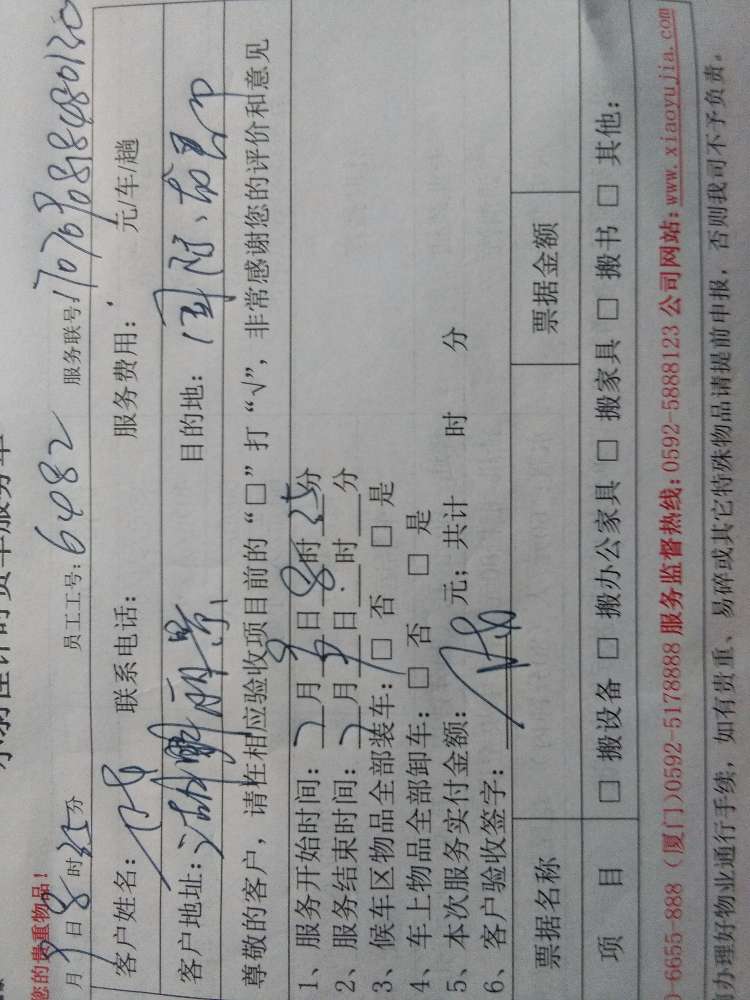 您的贵重物品！
月 日 8 时 25 分 员工工号：6482 服务联号：
客户姓名： 联系电话： 服务费用： 元/车/趟
客户地址：湖 丽景 目的地：国际
尊敬的客户，请在相应验收项目前的“□”打“√”，非常感谢您的评价和意见
1、服务开始时间：7 月 9 日 8 时 25 分
2、服务结束时间：7 月 9 日 时 分
3、候车区物品全部装车：□ 否 □ 是
4、车上物品全部卸车：□ 否 □ 是
5、本次服务实付金额： 元；共计 时 分
6、客户验收签字：
票据名称 票据金额
项 目 □ 搬设备 □ 搬办公家具 □ 搬家具 □ 搬书 □ 其他：
-6655-888（厦门）0592-5178888 服务监督热线：0592-5888123 公司网站：www.xiaoyujia.com
办理好物业通行手续，如有贵重、易碎或其它特殊物品请提前申报，否则我司不予负责。